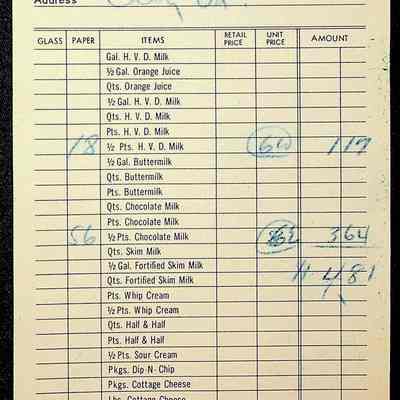 Address
GLASS PAPER ITEMS RETAIL PRICE UNIT PRICE AMOUNT
Gal. H. V. D. Milk
½ Gal. Orange Juice
Qts. Orange Juice
½ Gal. H. V. D. Milk
Qts. H. V. D. Milk
Pts. H. V. D. Milk
18 ½ Pts. H. V. D. Milk 117
½ Gal. Buttermilk
Qts. Buttermilk
Pts. Buttermilk
Qts. Chocolate Milk
Pts. Chocolate Milk
56 ½ Pts. Chocolate Milk 364
Qts. Skim Milk
½ Gal. Fortified Skim Milk 481
Qts. Fortified Skim Milk
Pts. Whip Cream
½ Pts. Whip Cream
Qts. Half & Half
Pts. Half & Half
½ Pts. Sour Cream
Pkgs. Dip-N-Chip
Pkgs. Cottage Cheese
Lbs. Cottage Cheese